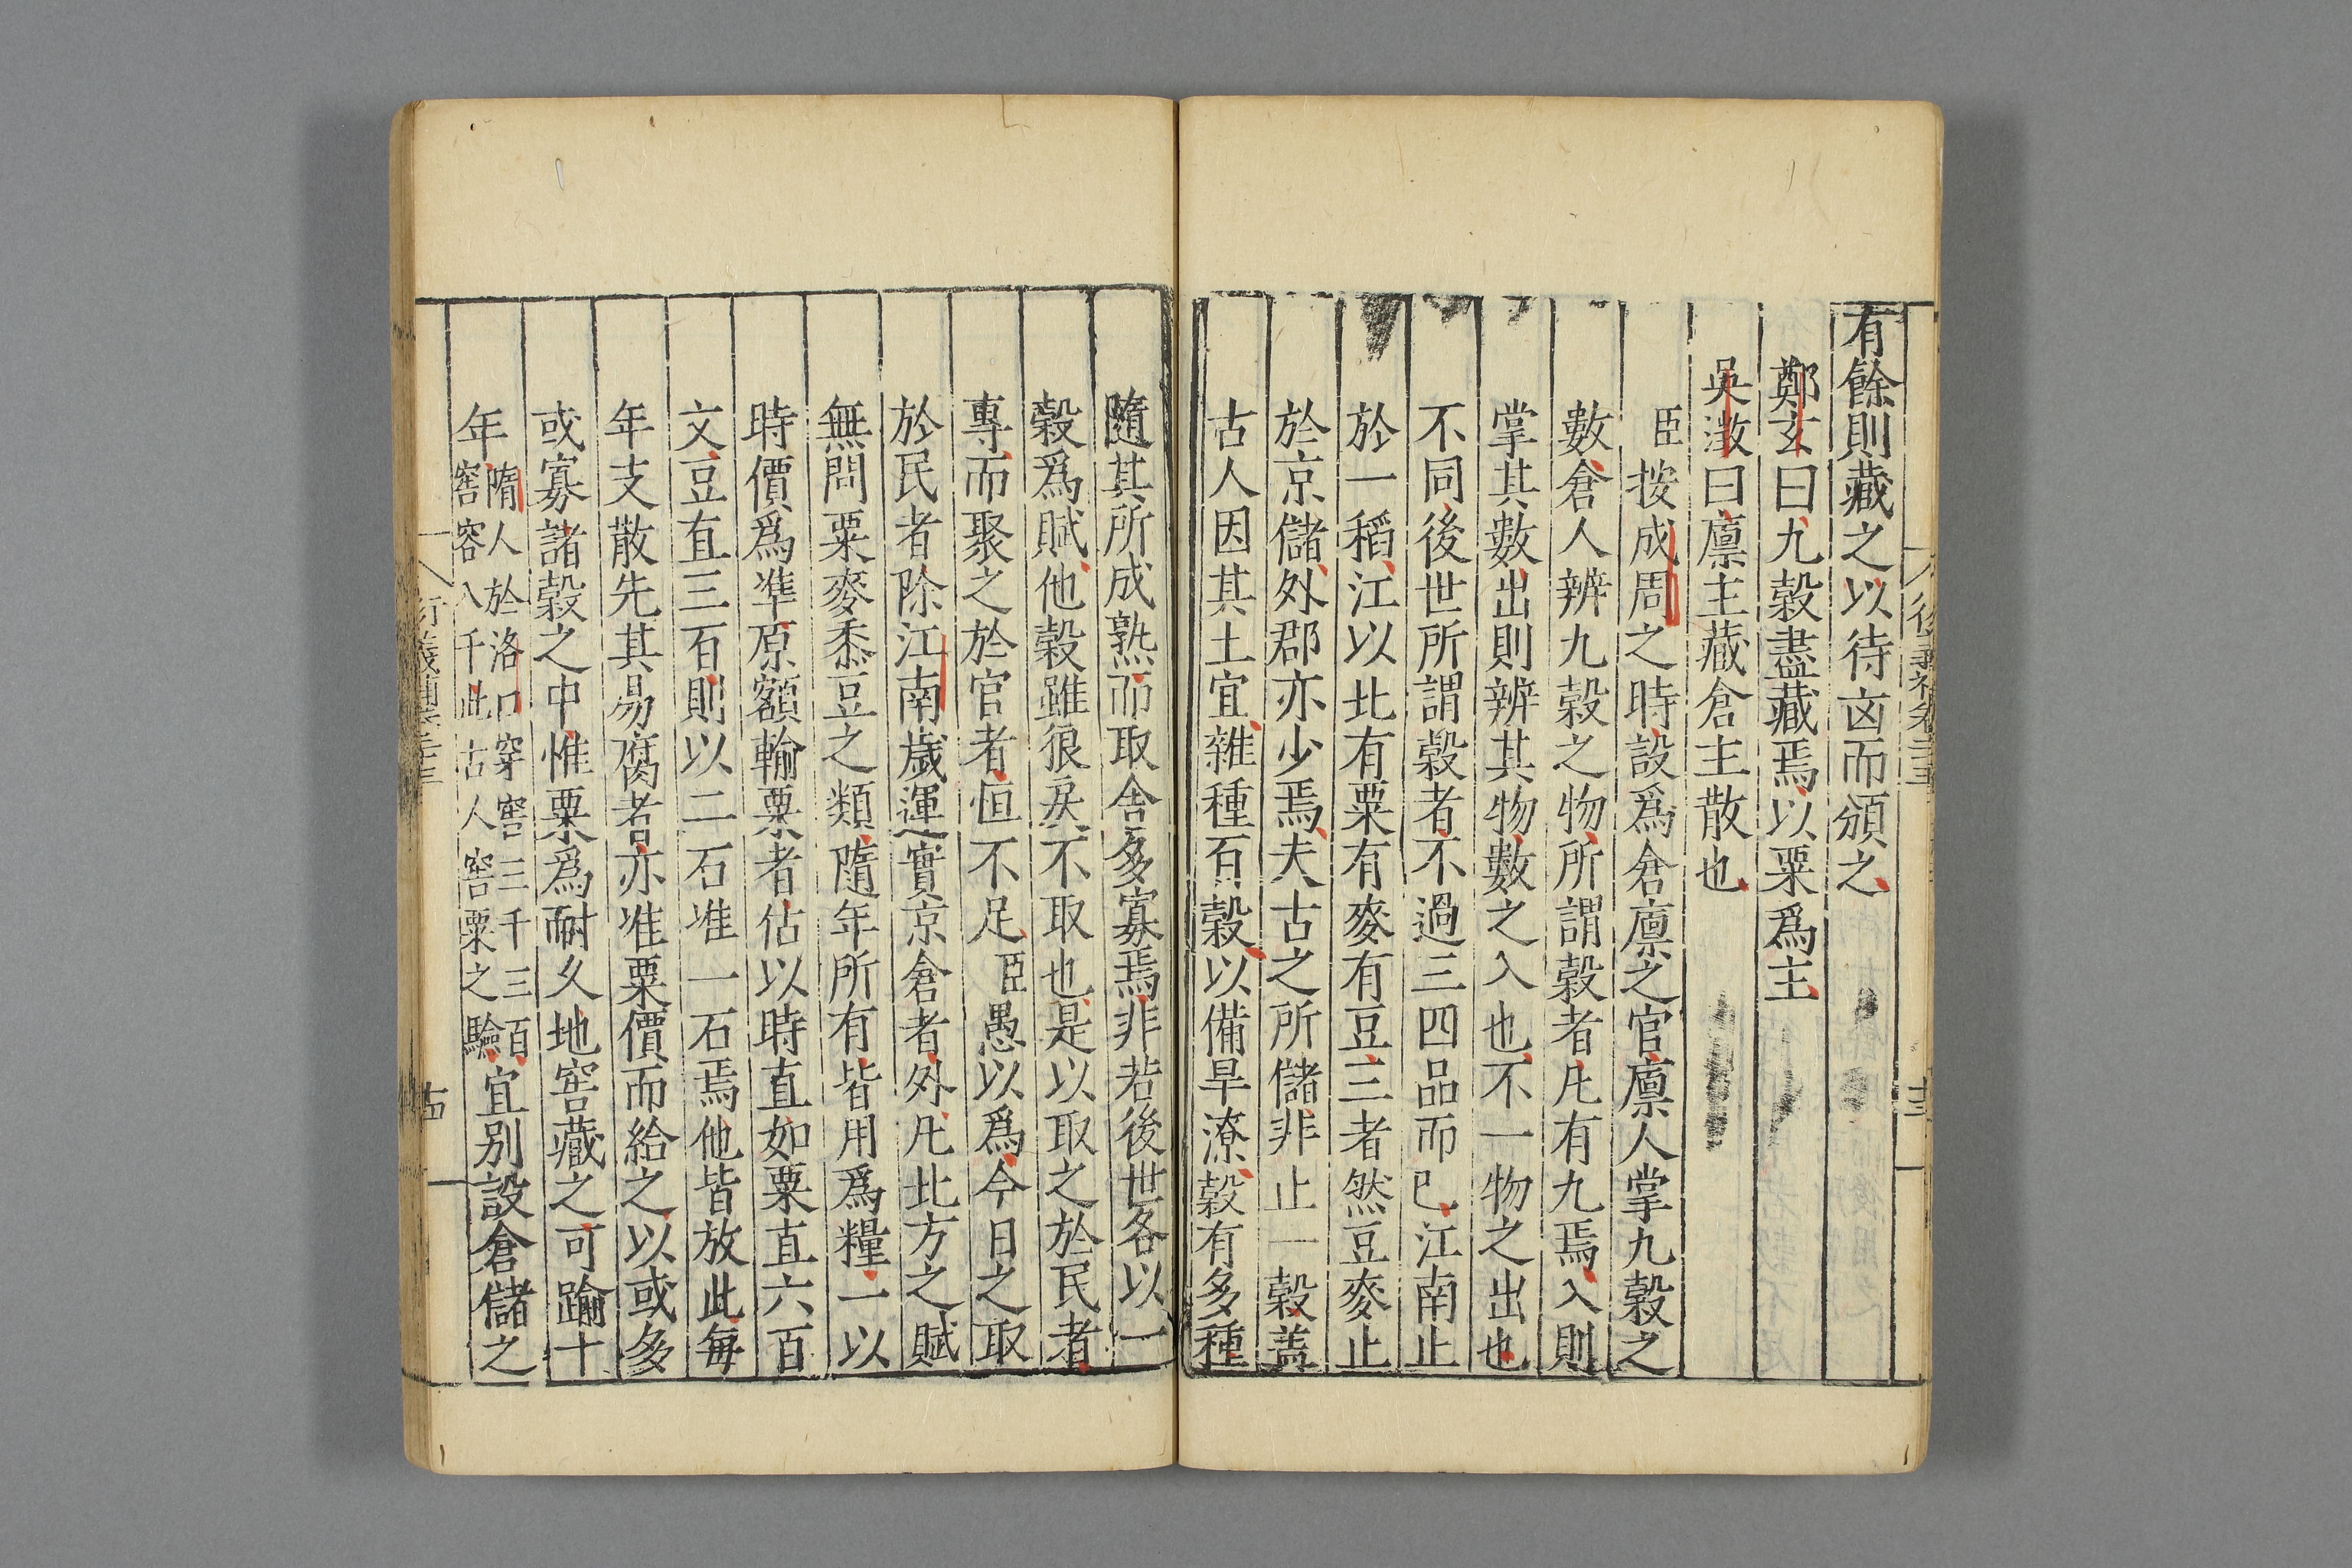 有餘則藏之以待㐫而頒之
鄭玄曰九榖盡藏焉以粟爲主
吳澂曰廪主藏倉主散也
臣按成周之時設爲倉廪之官廪人掌九榖之
數倉人辨九榖之物所謂榖者凡有九焉入則
掌其數出則辨其物數之入也不一物之出也
不同後世所謂榖者不過三四品而已江南止
於一稻江以北有粟有麥有豆三者然豆麥止
於京儲外郡亦少焉夫古之所儲非止一榖葢
古人因其土宜雜種百榖以備旱潦榖有多種
隨其所成熟而取舍多寡焉非若後世各以一
榖爲賦他榖雖狼戾不取也是以取之於民者
專而聚之於官者恒不足臣愚以爲今日之取
於民者除江南歲運實京倉者外凡北方之賦
無問粟麥黍豆之類隨年所有皆用爲糧一以
時價爲準原額輸粟者估以時直如粟直六百
文豆直三百則以二石准一石焉他皆放此每
年支散先其易腐者亦准粟價而給之以或多
或寡諸榖之中惟粟爲耐久地窖藏之可踰十
年隋人於洛口穿窖三千三百窖容八千此古人窖粟之驗宜別設倉儲之